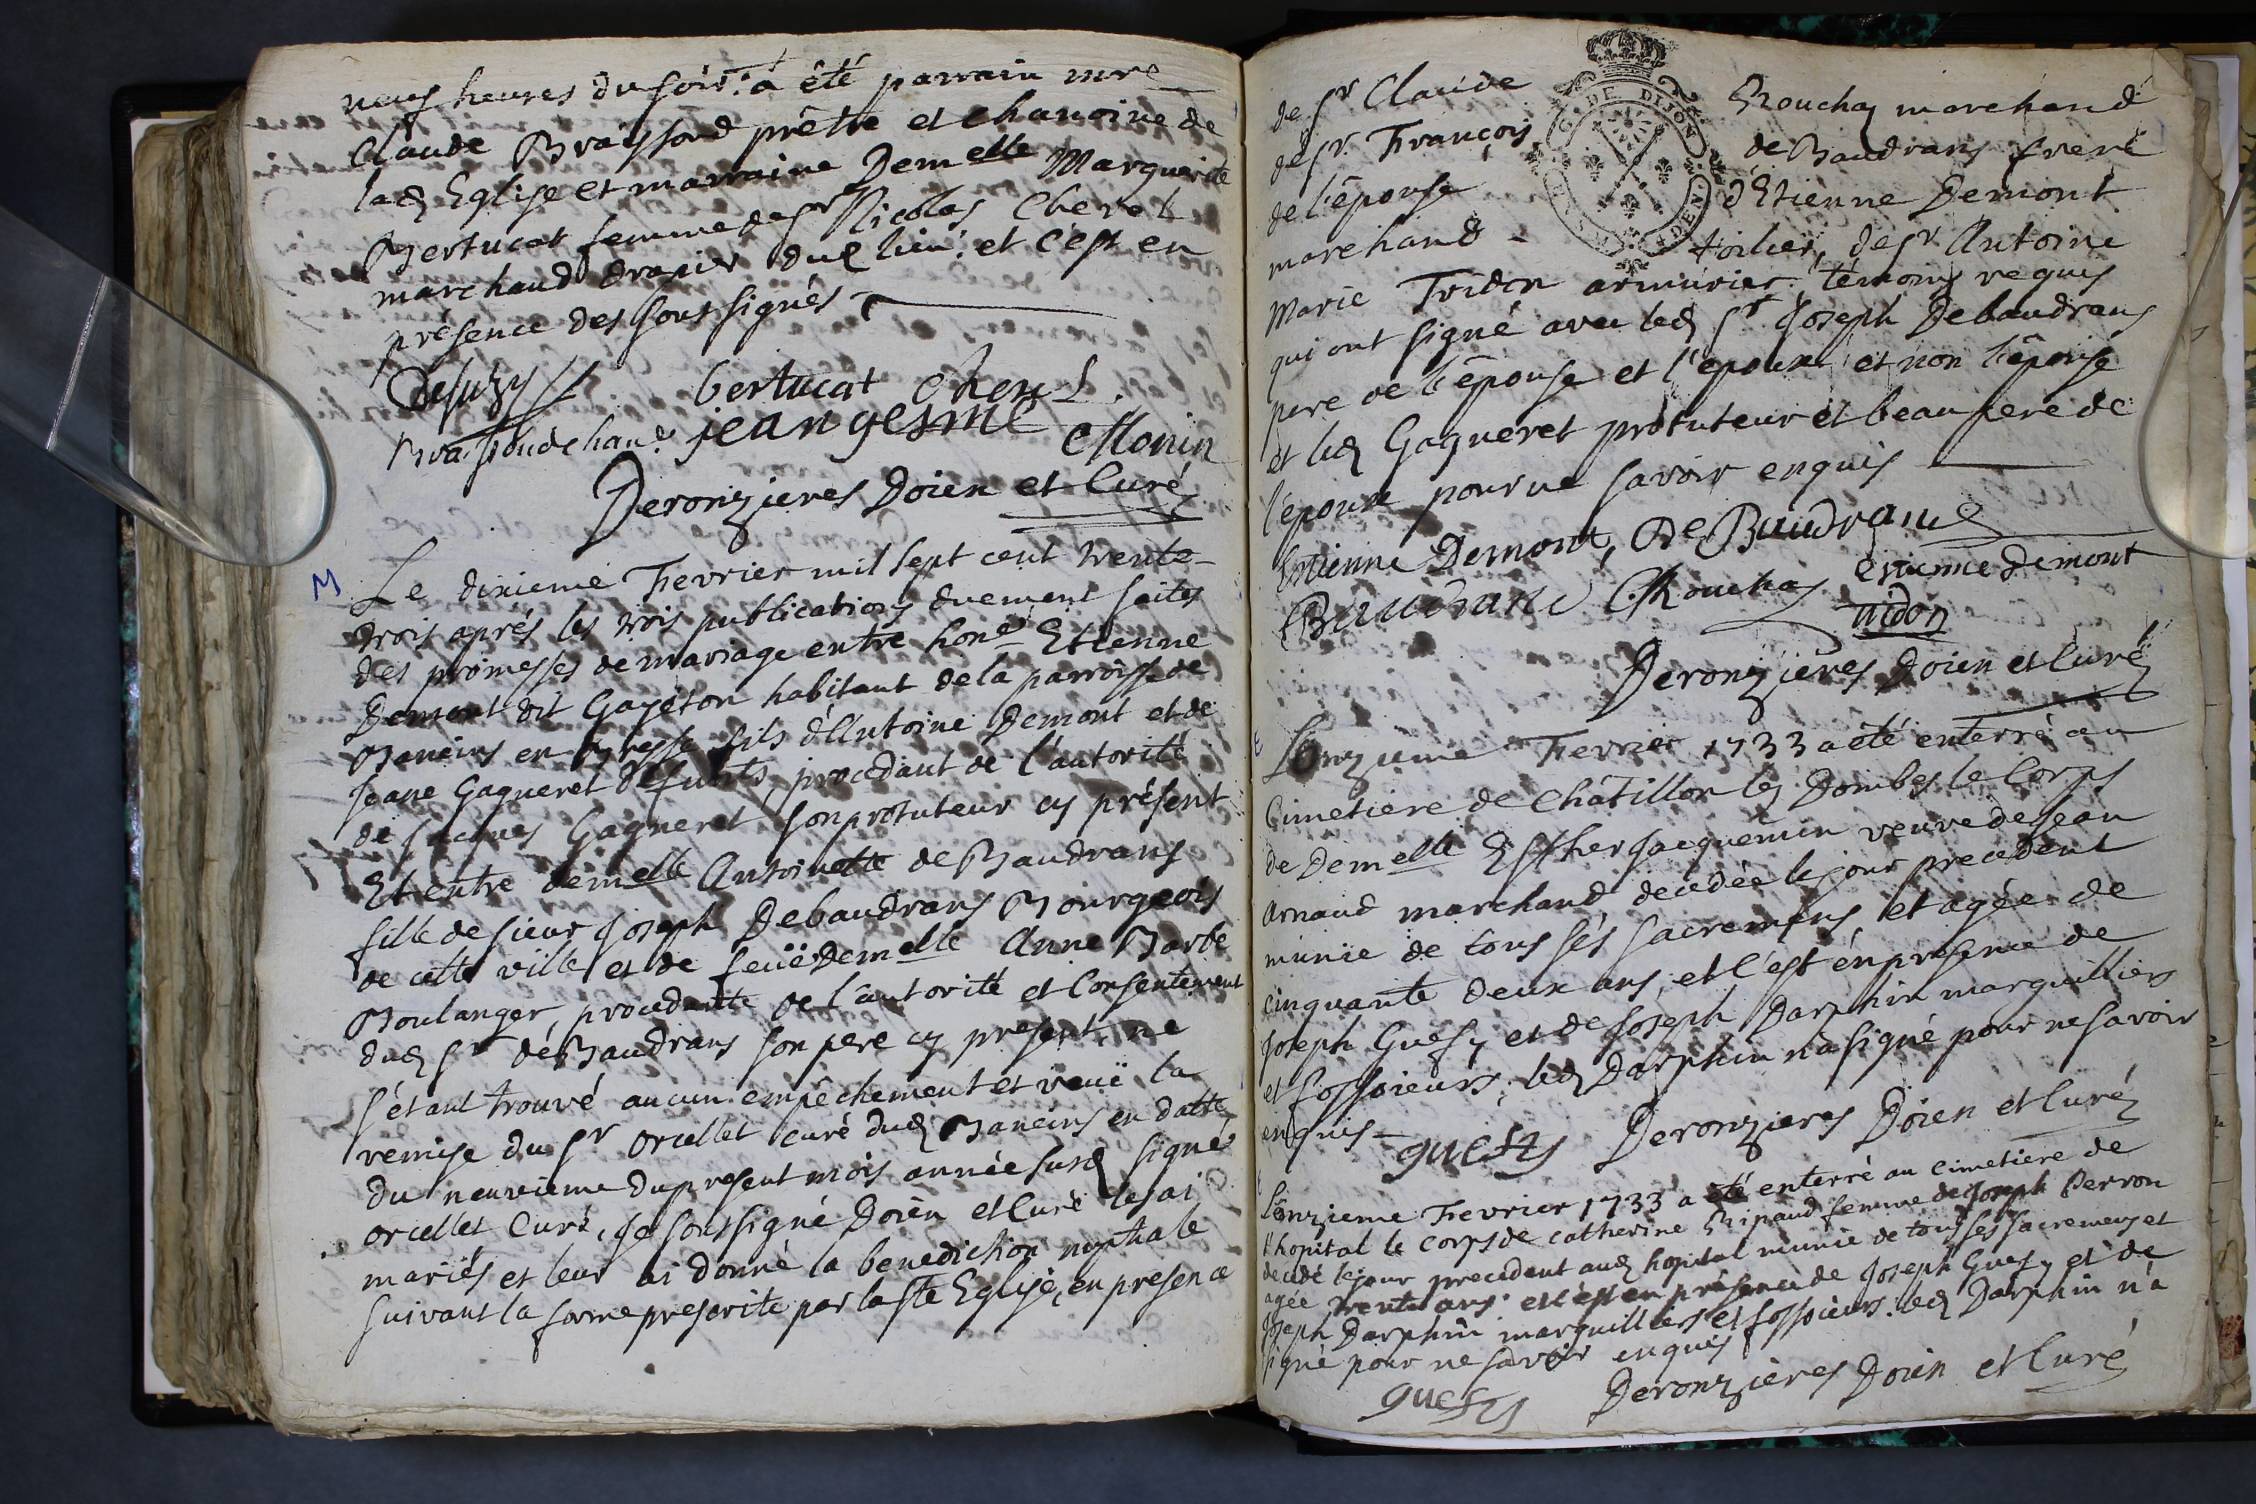 neuf heures du soir: a été parrain mre
Claude Brayssoud prêtre et chanoine de
lad Eglise et marraine Demelle Marguerite
Bertucat femme de Sr Nicolas Cherel
marchand drapier dud lieu: et c'est en
présence des soussignés
bertucat Cherel
jean gesme
Monin
Deronzieres Doien et Curé
M
Le dixieme Fevrier mil sept cent trente-
trois aprés les trois publications duement faites
des promesses de mariage entre honê Etienne
Demont dit Gayéton habitant de la parroisse de
Baneins en Bresse fils d'Antoine Demont et de
Jeane Gagneret défunts, procedant de l'autorité
de Jacques Gagneret son protuteur cy présent
Et entre demelle Antoinette de Baudrans
fille de sieur Joseph Debaudrans Bourgeois
de cette ville et de feuë Demelle Anne Barbe
Boulanger, procedante de l'autorité et Consentement
dud Sr de Baudrans son pere cy present, ne
s'étant trouvé aucun empêchement et veuë la
remise du Sr Orcellet curé dud Baneins en datte
du neuvieme du present mois année susd signé
orcellet Curé, Je soussigné Doien et Curé les ai
mariés et leur ai donné la benediction nuptiale
suivant la forme prescrite par la Ste Eglise, en presence
de Sr Claude Rouchas marchand
de Sr François de Baudrans frere
de l'épouse d'Etienne Demont
marchand - toilier, de Sr Antoine
Marie Tridon armurier, témoins requis
qui ont signé avec led Sr Joseph Debaudrans
pere de l'épouse et l'epoux et non l'épouse
et led Gagneret protuteur et beau pere de
l'époux pour ne savoir enquis
Estienne Demont, De Baudrand
estienne demont
Baudrand C. Rouchas
tridon
Deronzieres Doien et Curé
E
L'Onzieme Fevrier 1733 a été enterré au
Cimetiere de Châtillon les Dombes le Corps
de Demelle Esther Jacquemin veuve de Jean
Arnaud marchand decedée le jour precedent
munie de tous ses sacremens et agée de
cinquante deux ans, et c'est en presence de
Joseph Guesy et de Joseph Darphin marguilliers
et fossoieurs; led Darphin n'a signé pour ne savoir
enquis -
guesy Deronzieres Doien et Curé
L'onzieme Fevrier 1733 a été enterré au cimetiere de
l'hopital le corps de Catherine Ripaud femme de Joseph Perron
decedé le jour precedent aud hopital munie de tous ses sacremens et
agée trente ans. et c'est en présence de Joseph Guesy et de
Joseph Darphin marguilliers et fossoieurs. led Darphin n'a
signé pour ne savoir enquis
guesy Deronzieres Doien et Curé